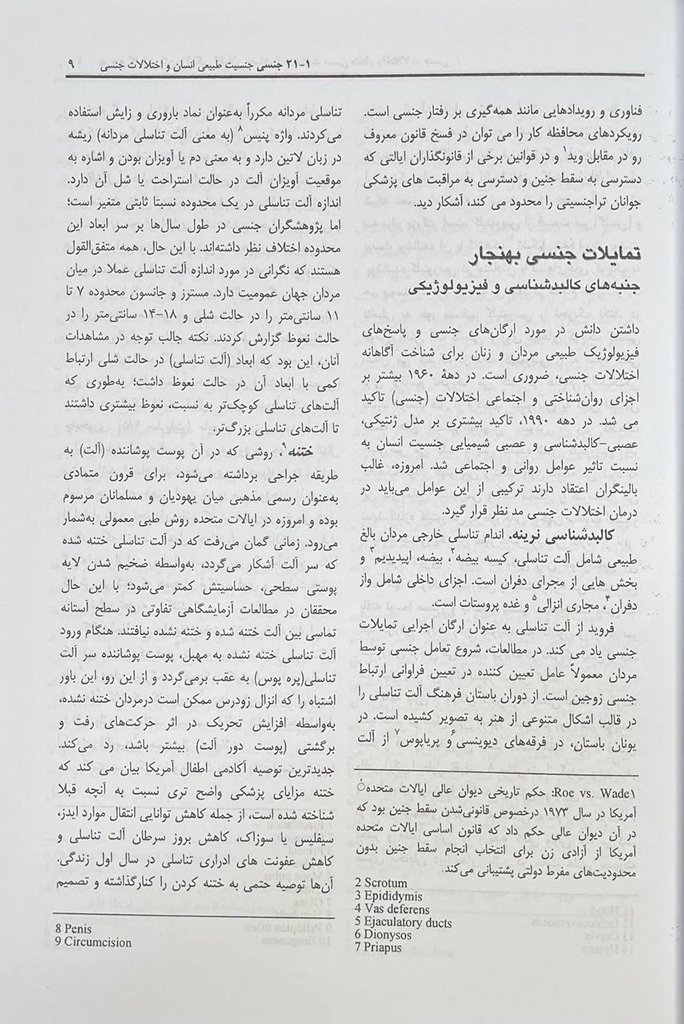 ۲۱-۱ جنسی جنسیت طبیعی انسان و اختلالات جنسی ۹
فناوری و رویدادهایی مانند همه‌گیری بر رفتار جنسی است.
رویکردهای محافظه کار را می توان در فسخ قانون معروف
رو در مقابل وید۱ و در قوانین برخی از قانونگذاران ایالتی که
دسترسی به سقط جنین و دسترسی به مراقبت های پزشکی
جوانان تراجنسیتی را محدود می کند، آشکار دید.
تمایلات جنسی بهنجار
جنبه‌های کالبدشناسی و فیزیولوژیکی
داشتن دانش در مورد ارگان‌های جنسی و پاسخ‌های
فیزیولوژیک طبیعی مردان و زنان برای شناخت آگاهانه
اختلالات جنسی، ضروری است. در دههٔ ۱۹۶۰ بیشتر بر
اجزای روان‌شناختی و اجتماعی اختلالات (جنسی) تاکید
می شد. در دهه ۱۹۹۰، تاکید بیشتری بر مدل ژنتیکی،
عصبی-کالبدشناسی و عصبی شیمیایی جنسیت انسان به
نسبت تاثیر عوامل روانی و اجتماعی شد. امروزه، غالب
بالینگران اعتقاد دارند ترکیبی از این عوامل می‌باید در
درمان اختلالات جنسی مد نظر قرار گیرد.
کالبدشناسی نرینه. اندام تناسلی خارجی مردان بالغ
طبیعی شامل آلت تناسلی، کیسه بیضه۲، بیضه، اپیدیدیم۳ و
بخش هایی از مجرای دفران است. اجزای داخلی شامل واز
دفران۴، مجاری انزالی۵ و غده پروستات است.
فروید از آلت تناسلی به عنوان ارگان اجرایی تمایلات
جنسی یاد می کند. در مطالعات، شروع تعامل جنسی توسط
مردان معمولاً عامل تعیین کننده در تعیین فراوانی ارتباط
جنسی زوجین است. از دوران باستان فرهنگ آلت تناسلی را
در قالب اشکال متنوعی از هنر به تصویر کشیده است. در
یونان باستان، در فرقه‌های دیونیسی۶ و پریاپوس۷ از آلت
۱Roe vs. Wade: حکم تاریخی دیوان عالی ایالات متحده
آمریکا در سال ۱۹۷۳ درخصوص قانونی‌شدن سقط جنین بود که
در آن دیوان عالی حکم داد که قانون اساسی ایالات متحده
آمریکا از آزادی زن برای انتخاب انجام سقط جنین بدون
محدودیت‌های مفرط دولتی پشتیبانی می‌کند.
2 Scrotum
3 Epididymis
4 Vas deferens
5 Ejaculatory ducts
6 Dionysos
7 Priapus
تناسلی مردانه مکرراً به‌عنوان نماد باروری و زایش استفاده
می‌کردند. واژه پنیس۸ (به معنی آلت تناسلی مردانه) ریشه
در زبان لاتین دارد و به معنی دم یا آویزان بودن و اشاره به
موقعیت آویزان آلت در حالت استراحت یا شل آن دارد.
اندازه آلت تناسلی در یک محدوده نسبتا ثابتی متغیر است؛
اما پژوهشگران جنسی در طول سال‌ها بر سر ابعاد این
محدوده اختلاف نظر داشته‌اند. با این حال، همه متفق‌القول
هستند که نگرانی در مورد اندازه آلت تناسلی عملا در میان
مردان جهان عمومیت دارد. مسترز و جانسون محدوده ۷ تا
۱۱ سانتی‌متر را در حالت شلی و ۱۸-۱۴ سانتی‌متر را در
حالت نعوظ گزارش کردند. نکته جالب توجه در مشاهدات
آنان، این بود که ابعاد (آلت تناسلی) در حالت شلی ارتباط
کمی با ابعاد آن در حالت نعوظ داشت؛ به‌طوری که
آلت‌های تناسلی کوچک‌تر به نسبت، نعوظ بیشتری داشتند
تا آلت‌های تناسلی بزرگ‌تر.
ختنه۹، روشی که در آن پوست پوشاننده (آلت) به
طریقه جراحی برداشته می‌شود، برای قرون متمادی
به‌عنوان رسمی مذهبی میان یهودیان و مسلمانان مرسوم
بوده و امروزه در ایالات متحده روش طبی معمولی به‌شمار
می‌رود. زمانی گمان می‌رفت که در آلت تناسلی ختنه شده
که سر آلت آشکار می‌گردد، به‌واسطه ضخیم شدن لایه
پوستی سطحی، حساسیتش کمتر می‌شود؛ با این حال
محققان در مطالعات آزمایشگاهی تفاوتی در سطح آستانه
تماسی بین آلت ختنه شده و ختنه نشده نیافتند. هنگام ورود
آلت تناسلی ختنه نشده به مهبل، پوست پوشاننده سر آلت
تناسلی(پره پوس) به عقب برمی‌گردد و از این رو، این باور
اشتباه را که انزال زودرس ممکن است درمردان ختنه نشده،
به‌واسطه افزایش تحریک در اثر حرکت‌های رفت و
برگشتی (پوست دور آلت) بیشتر باشد، رد می‌کند.
جدیدترین توصیه آکادمی اطفال آمریکا بیان می کند که
ختنه مزایای پزشکی واضح تری نسبت به آنچه قبلا
شناخته شده است، از جمله کاهش توانایی انتقال موارد ایدز،
سیفلیس یا سوزاک، کاهش بروز سرطان آلت تناسلی و
کاهش عفونت های ادراری تناسلی در سال اول زندگی.
آن‌ها توصیه حتمی به ختنه کردن را کنارگذاشته و تصمیم
8 Penis
9 Circumcision